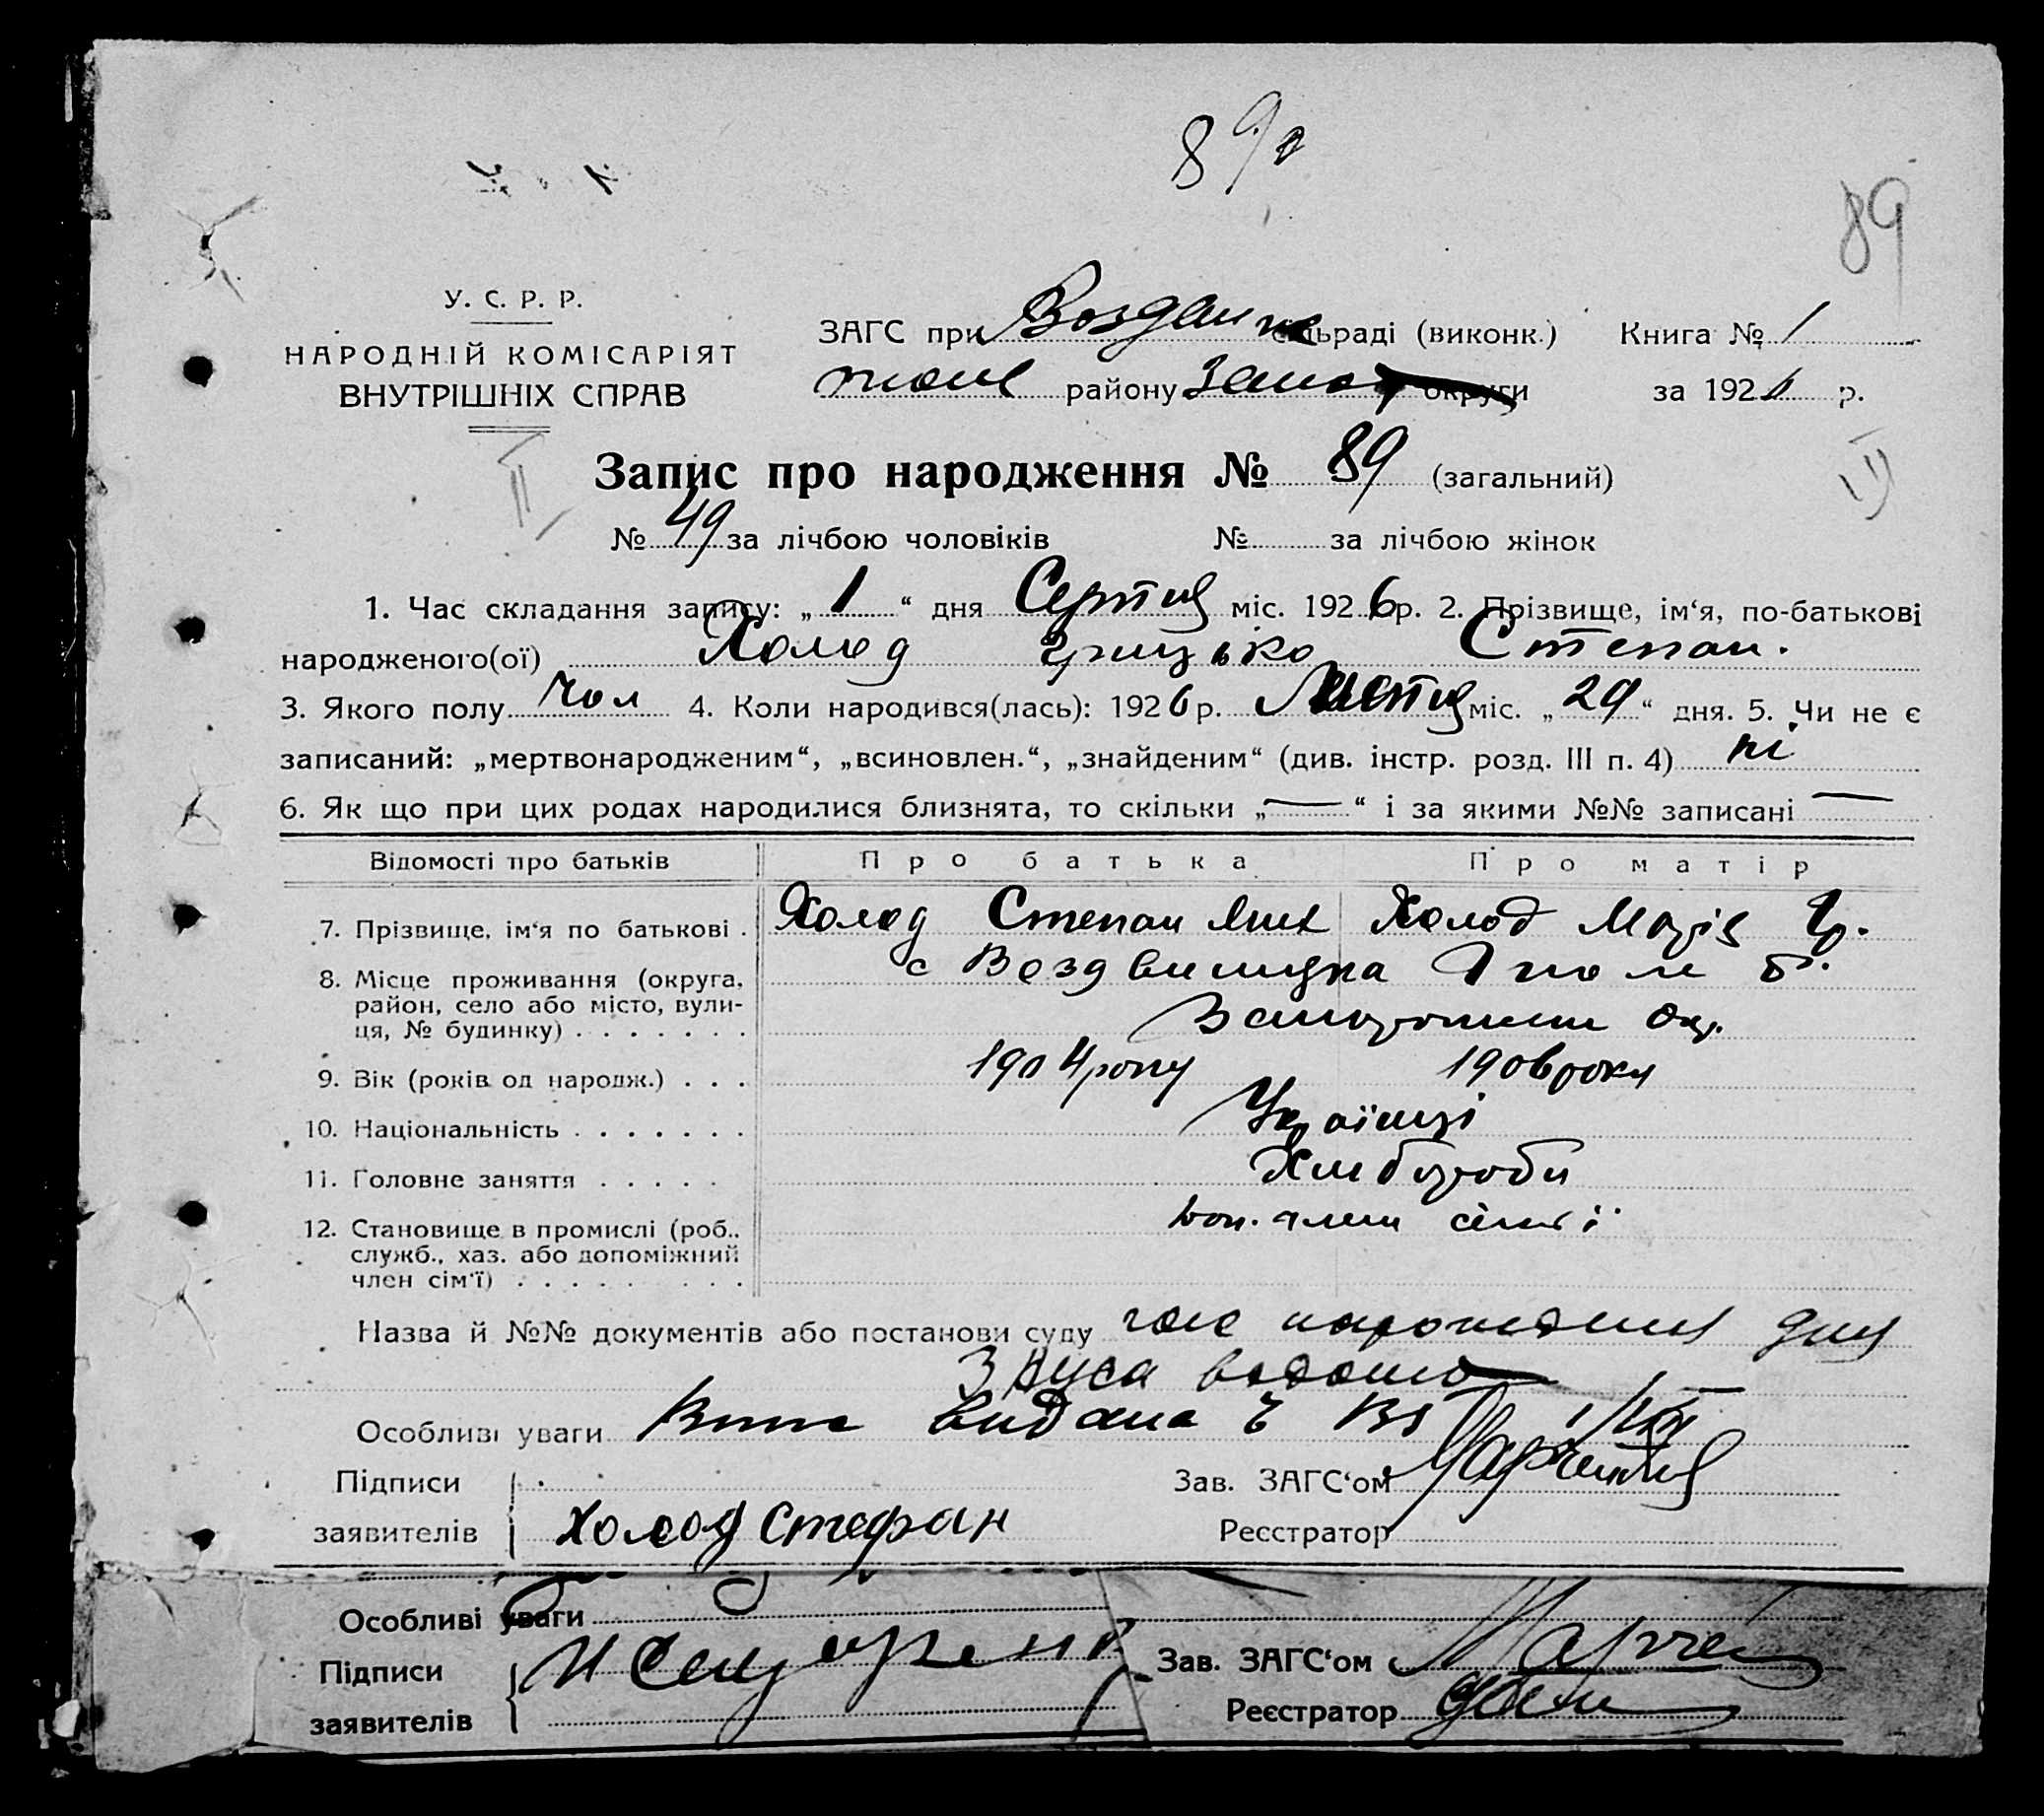 89
89
У. С. Р. Р.
НАРОДНІЙ КОМІСАРІЯТ
ВНУТРІШНІХ СПРАВ
ЗАГС при сільраді (виконк.) Книга № 1
району Запор округи за 1926 р.
Запис про народження № 89 (загальний)
№ 49 за лічбою чоловіків № за лічбою жінок
1. Час складання запису: „ 1 “ дня Серпня міс. 1926 р. 2. Прізвище, ім‘я, по-батькові
народженого(ої) Холод Грицько Степан.
3. Якого полу чол 4. Коли народився(лась): 1926 р. міс. „ 29 “ дня. 5. Чи не є
записаний: „мертвонародженим“, „всиновлен.“, „знайденим“ (див. інстр. розд. III п. 4) ні
6. Як що при цих родах народилися близнята, то скільки „ — “ і за якими №№ записані —
Відомості про батьків Про батька Про матір
7. Прізвище, ім‘я по батькові . Холод Степан Холод Марія Гр.
8. Місце проживання (округа, с Воздвиицка
район, село або місто, вули-
ця, № будинку) . . . . . . . Окр.
9. Вік (років од народж.) . . . 1904 року 1906 року
10. Національність . . . . . . . Українці
11. Головне заняття . . . . . Хлібороби
12. Становище в промислі (роб., доп. члени сім'ї
служб., хаз. або допоміжний
член сім‘ї) . . . . . . . .
Назва й №№ документів або постанови суду
Особливі уваги видана
Підписи Зав. ЗАГС‘ом
заявителів Холод Стефан Реєстратор
Особливі уваги
Підписи Зав. ЗАГС‘ом
заявителів Реєстратор